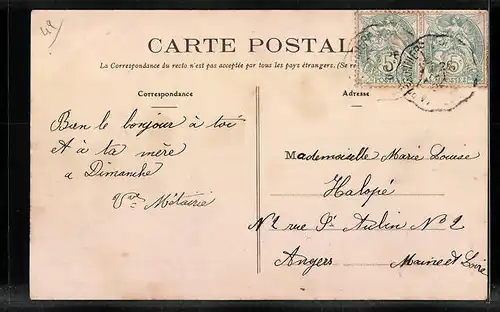 49
CARTE POSTALE
La Correspondance du recto n'est pas acceptée par tous les pays étrangers. (Se
Correspondance
Adresse
Bien le bonjour à toi
et à ta mère
a Dimanche
Vve Métairie
Mademoiselle Marie Louise
Halopé
N2 rue St Aubin No 2
Angers Maine et Loire